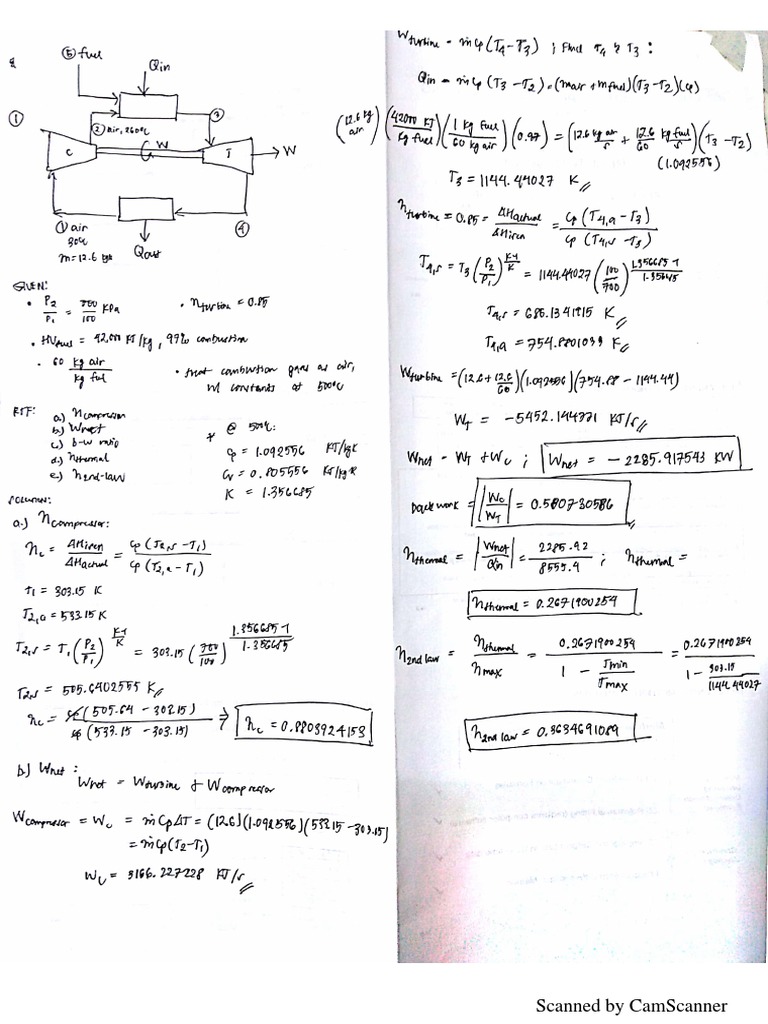 ⑤ fuel
Qin
①
② air, 260°C
③
C
W
T
W
① air
30°C
ṁ = 12.6 kg/s
Qout
④
GIVEN:
• P2/P1 = 700/100 kPa
• ηturbine = 0.85
• HVfuel = 42,000 KJ/kg, 97% combustion
• 60 kg air/kg fuel
• treat combustion gases as air,
w/ constants at 500°C
RTF: a.) ηcompressor
b.) Wnet
c.) b-w ratio
d.) ηthermal
e.) η2nd-law
* @ 500°C:
Cp = 1.092556 KJ/kgK
Cv = 0.805556 KJ/kgK
K = 1.356685
SOLUTION:
a.) ηcompressor:
ηc = ΔHisen/ΔHactual = Cp(T2,s - T1)/Cp(T2,a - T1)
T1 = 303.15 K
T2,a = 533.15 K
T2,s = T1(P2/P1)^(K-1/K) = 303.15(700/100)^(1.356685-1/1.356685)
T2,s = 505.6402555 K
ηc = Cp(505.64 - 303.15)/Cp(533.15 - 303.15) ⇒ ηc = 0.8803924153
b.) Wnet:
Wnet = Wturbine + Wcompressor
Wcompressor = Wc = ṁCpΔT = (12.6)(1.092556)(533.15 - 303.15)
= ṁCp(T2-T1)
Wc = 3166.227228 KJ/s
Wturbine = ṁCp(T4-T3) ; Find T4 & T3:
Qin = ṁCp(T3-T2) = (mair + mfuel)(T3-T2)(Cp)
(12.6 kg air)(42000 KJ/kg fuel)(1 kg fuel/60 kg air)(0.97) = (12.6 kg air/s + 12.6/60 kg fuel/s)(T3-T2)
(1.092556)
T3 = 1144.44027 K
ηturbine = 0.85 = ΔHactual/ΔHisen = Cp(T4,a - T3)/Cp(T4,s - T3)
T4,s = T3(P2/P1)^(K-1/K) = 1144.44027(100/700)^(1.356685-1/1.35665)
T4,s = 686.1341915 K
T4,a = 754.8801039 K
Wturbine = (12.6 + 12.6/60)(1.092556)(754.88 - 1144.44)
WT = -5452.144771 KJ/s
Wnet = WT + Wc ; Wnet = -2285.917543 KW
back work = |Wc/WT| = 0.580730586
ηthermal = |Wnet/Qin| = 2285.92/8555.4 ; ηthermal =
ηthermal = 0.2671900254
η2nd law = ηthermal/ηmax = 0.2671900254/(1 - Tmin/Tmax) = 0.2671900254/(1 - 303.15/1144.44027)
η2nd law = 0.3634691089
Scanned by CamScanner